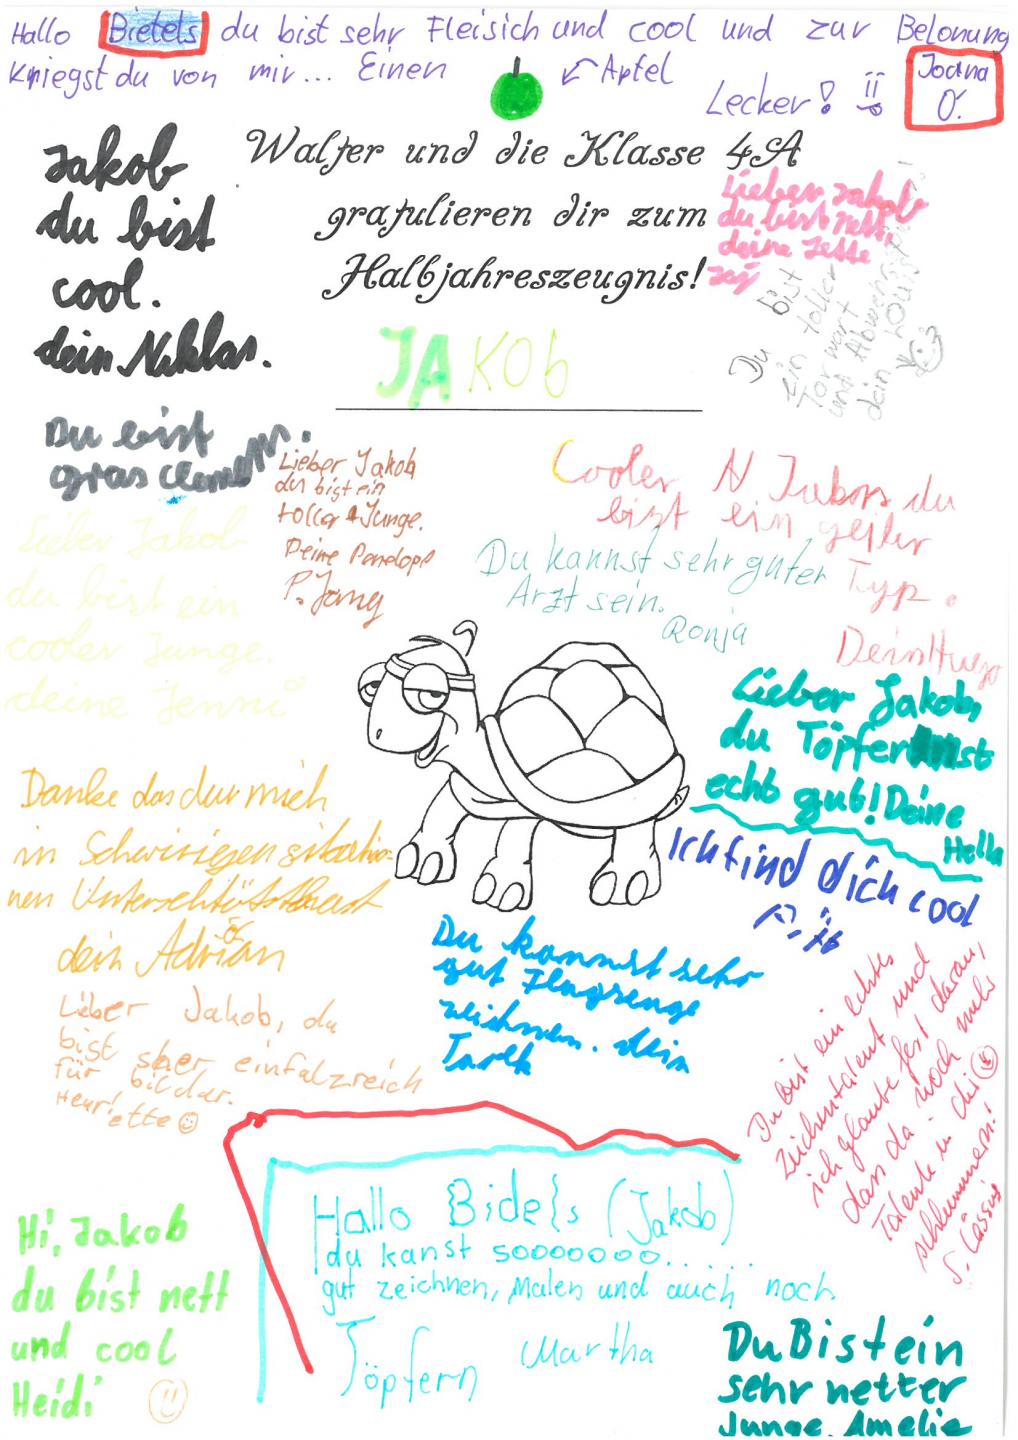 Hallo Bietels du bist sehr Fleisich und cool und zur Belonung
kriegst du von mir... Einen Apfel
Lecker!
Joana
O.
Walter und die Klasse 4A
gratulieren dir zum
Halbjahreszeugnis!
JAKOb
Jakob
du bist
cool.
dein Niklas.
Lieber Jakob
du bist nett,
deine
Du bist
ein toller
Torwart
und Abwehrspieler!
dein Louis
Du bist
Lieber Jakob
du bist ein
toller Junge.
Deine Penelope
P. Jang
Cooler
du
bist ein geiler
Typ.
Dein Hugo
Lieber Jakob
du bist ein
cooler Junge.
deine Jenni
Du kannst sehr guter
Arzt sein.
Ronja
Lieber Jakob,
du Töpferst
echt gut! Deine
Hella
Danke das du mich
in Schwirigen situatio-
nen Unterschtütst hast
dein Adrian
Ich find dich cool
Du kannst sehr
gut Flugzeuge
zeichnen. dein
Tarek
Lieber Jakob, du
bist sher einfalzreich
für bilder.
Henriette
Du bist ein echtes
Zeichentalent und
ich glaube fest daran,
dass da noch mehr
Talente in dir
schlummern!
S. Cassius
Hallo Bidels (Jakob)
du kanst sooooooo......
gut zeichnen, Malen und auch noch
Töpfern Martha
Hi, Jakob
du bist nett
und cool
Heidi
Du Bist ein
sehr netter
Junge. Amelie